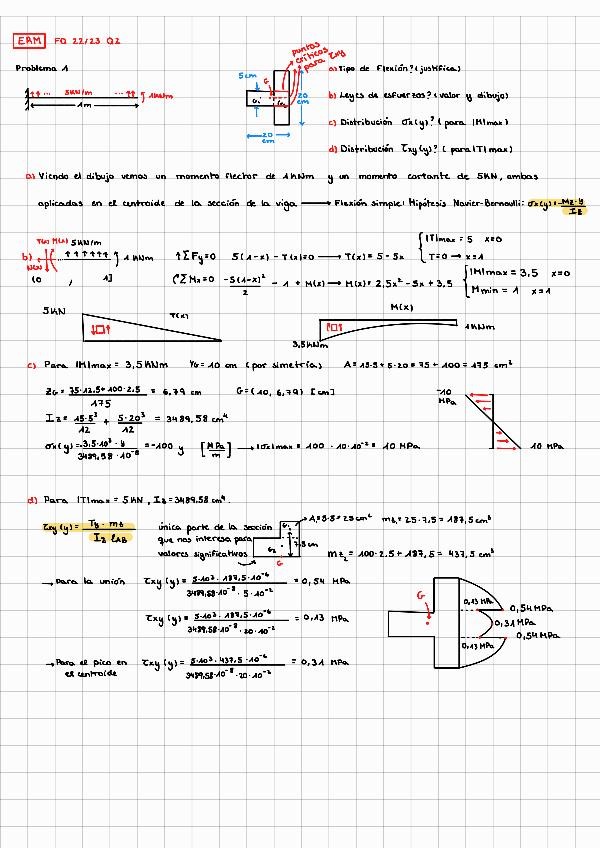 ERM FQ 22/23 Q2
Problema 1
5kN/m
1kNm
1m
puntos críticos para τxy
5cm
G
G₁
G₂
20 cm
20 cm
a) Tipo de Flexión? (justifica)
b) Leyes de esfuerzos? (valor y dibujo)
c) Distribución σx(y)? (para |M|max)
d) Distribución τxy(y)? (para |T|max)
a) Viendo el dibujo vemos un momento flector de 1kNm y un momento cortante de 5kN, ambos
aplicados en el centroide de la sección de la viga ⟶ Flexión simple! Hipótesis Navier-Bernoulli: σx(y)=-Mz·y/Iz
b) T(x) M(x) 5kN/m
N(x) 1kNm
(0 , 1]
↑ΣFy=0 5(1-x) - T(x)=0 ⟶ T(x)= 5-5x { |T|max = 5 x=0
T=0 → x=1
ΣMz=0 -5(1-x)²/2 - 1 + M(x) ⟶ M(x)= 2,5x² - 5x + 3,5 { |M|max = 3,5 x=0
Mmin = 1 x=1
5kN T(x)
M(x)
3,5kNm
1kNm
c) Para |M|max = 3,5kNm YG= 10 cm (por simetría) A= 15·5+5·20 = 75 + 100 = 175 cm²
ZG = 75·12,5+100·2,5/175 = 6,79 cm G=(10, 6,79) [cm]
Iz= 15·5³/12 + 5·20³/12 = 3489,58 cm⁴
σx(y)= -3,5·10³·y/3489,58·10⁻⁸ = -100 y [MPa/m] ⟶ |σ|max = 100·10·10⁻² = 10 MPa
-10 MPa
10 MPa
d) Para |T|max = 5kN, Iz = 3489,58 cm⁴.
τxy(y) = Ty·mz/Iz ℓAB
única parte de la sección
que nos interesa para
valores significativos
G₁
G₂
7,5cm
G
A=5·5= 25 cm² mz₁= 25·7,5 = 187,5 cm³
mz₂ = 100·2,5 + 187,5 = 437,5 cm³
→ Para la unión τxy(y)= 5·10³·187,5·10⁻⁶/3489,58·10⁻⁸·5·10⁻² = 0,54 MPa
τxy(y)= 5·10³·187,5·10⁻⁶/3489,58·10⁻⁸·20·10⁻² = 0,13 MPa
→ Para el pico en
el centroide
τxy(y)= 5·10³·437,5·10⁻⁶/3489,58·10⁻⁸·20·10⁻² = 0,31 MPa
G
0,13 MPa
0,54 MPa
0,31 MPa
0,54 MPa
0,13 MPa